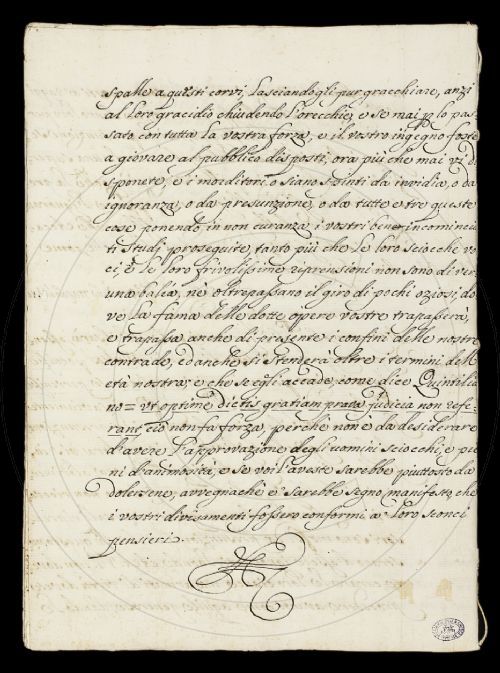 spalle a questi corvi, lasciandogli pur gracchiare, anzi
al loro gracidio chiudendo l'orecchie; e se mai p lo pas
sato con tutta la vostra forza, e il vostro ingegno foste
a giovare al pubblico disposti, ora più che mai vi di
sponete, e i morditori o siano spinti da invidia, o da
ignoranza, o da presunzione, o da tutte e tre queste
cose ponendo in non curanza i vostri bene incomincia
ti studi proseguite, tanto più che le loro sciocche vo
ci, e le loro frivolissime riprensioni non sono di ver
una balìa, nè oltrepassano il giro di pochi oziosi, do
ve la fama delle dotte opere vostre trapasserà,
e trapassa anche di presente i confini delle nostre
contrade, ed anche si stenderà oltre i termini dell'
età nostra; e che se egli accade, come dice Quintilia
no = ut optime dictis gratiam prava judicia non refe
rant, ciò non fa forza, perchè non è da desiderare
d'avere l'approvazione degli uomini sciocchi, e pie
ni d'animosità, e se voi l'aveste sarebbe piuttosto da
dolersene, avvegnachè e' sarebbe segno manifesto che
i vostri divisamenti fossero conformi a' loro sconci
pensieri.